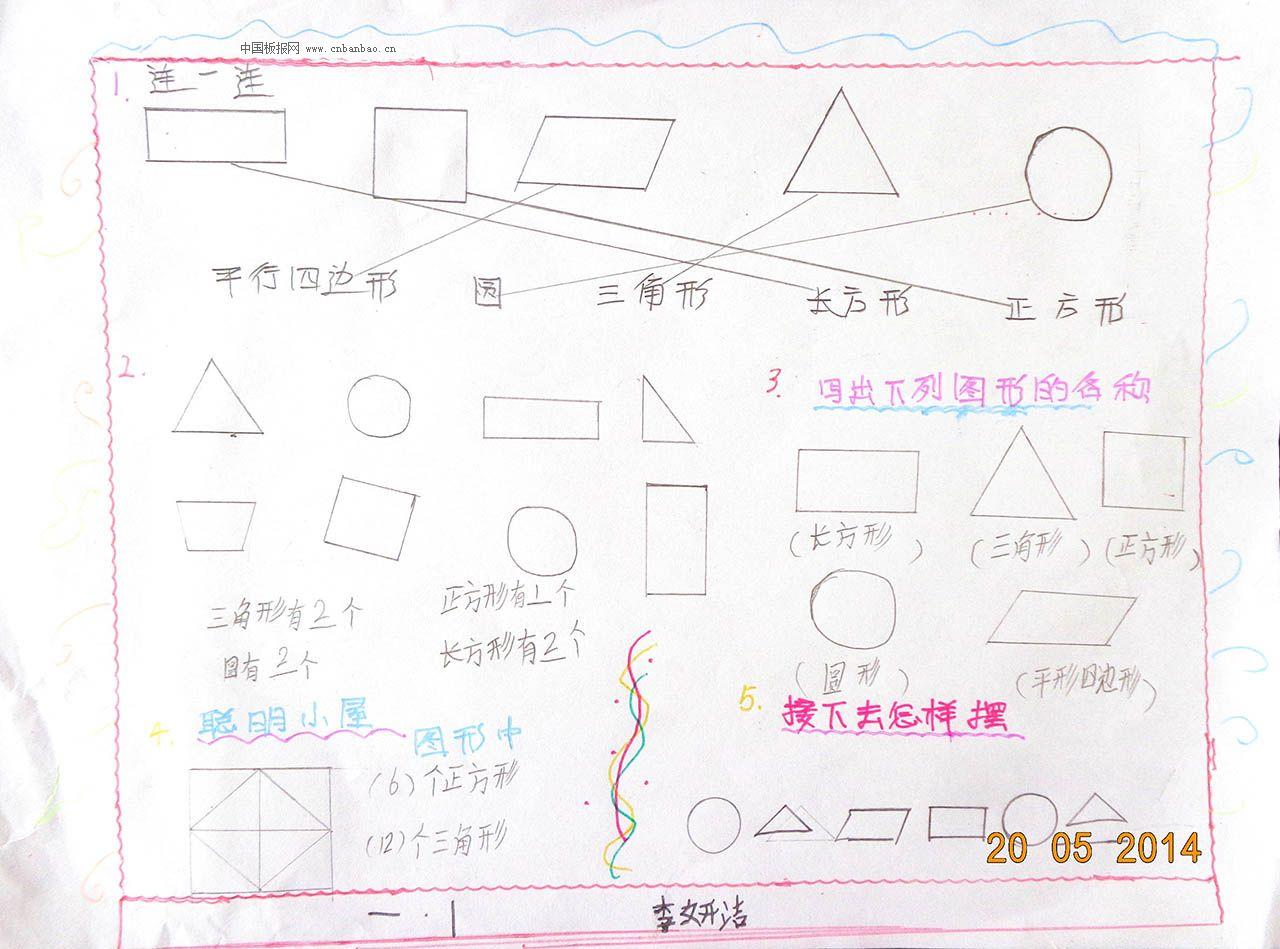 中国板报网 www.cnbanbao.cn
1. 连一连
平行四边形 圆 三角形 长方形 正方形
2.
三角形有2个
正方形有1个
圆有2个
长方形有2个
3. 写出下列图形的名称
(长方形) (三角形) (正方形)
(圆形) (平形四边形)
4. 聪明小屋
图形中
(6)个正方形
(12)个三角形
5. 接下去怎样摆
20 05 2014
一.1 李文妍洁